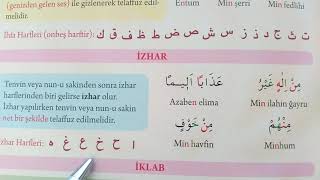 (genizden gelen ses) ile gizlenerek telaffuz edil-
melidir.
Entum Min şerri Min fedlihi
İhfa Harfleri (onbeş harftir) ت ث ج د ذ ز س ش ص ض ط ظ ف ق ك
İZHAR
Tenvin veya nun-u sakinden sonra izhar
harflerinden biri gelirse izhar olur.
İzhar yapılırken tenvin veya nun-u sakin
net bir şekilde telaffuz edilmelidir.
عَذَابًا اَل۪يمًا مِنْ اِلٰهٍ غَيْرُ
Azaben elima Min ilahin ğayru
مِنْ خَوْفٍ مِنْهُمْ
Min havfin Minhum
zhar Harfleri: ا ح خ ع غ ه
İKLAB